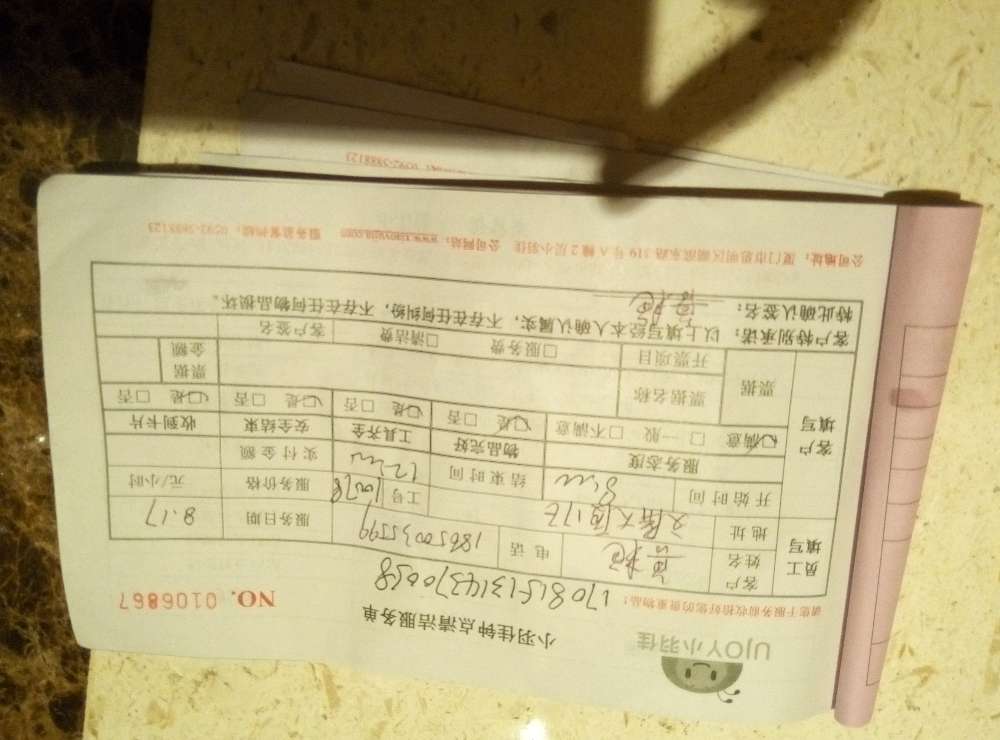 UJOY小羽佳
小羽佳钟点清洁服务单
请您于服务前收拾好您的贵重物品！
1708151314370058
NO. 0106867
员工填写
客户姓名
电话 18650035599
服务日期 8.17
地址
工号 10078
服务价格 元/小时
开始时间 8
结束时间 12
实付金额
客户填写
服务态度 物品完好 工具齐全 安全结束 收到卡片
☑满意 □一般 □不满意 ☑是 □否 ☑是 □否 ☑是 □否 ☑是 □否
票据 票据名称 票据金额
开票项目 □服务费 □清洁费 客户签名
客户特别承诺：以上填写经本人确认属实，不存在任何纠纷，不存在任何物品损坏。
特此确认签名：
公司地址：厦门市思明区湖滨东路319号A幢2层小羽佳 公司网站：www.xiaoyujia.com 服务监督热线：0592-5988123
0592-5988123